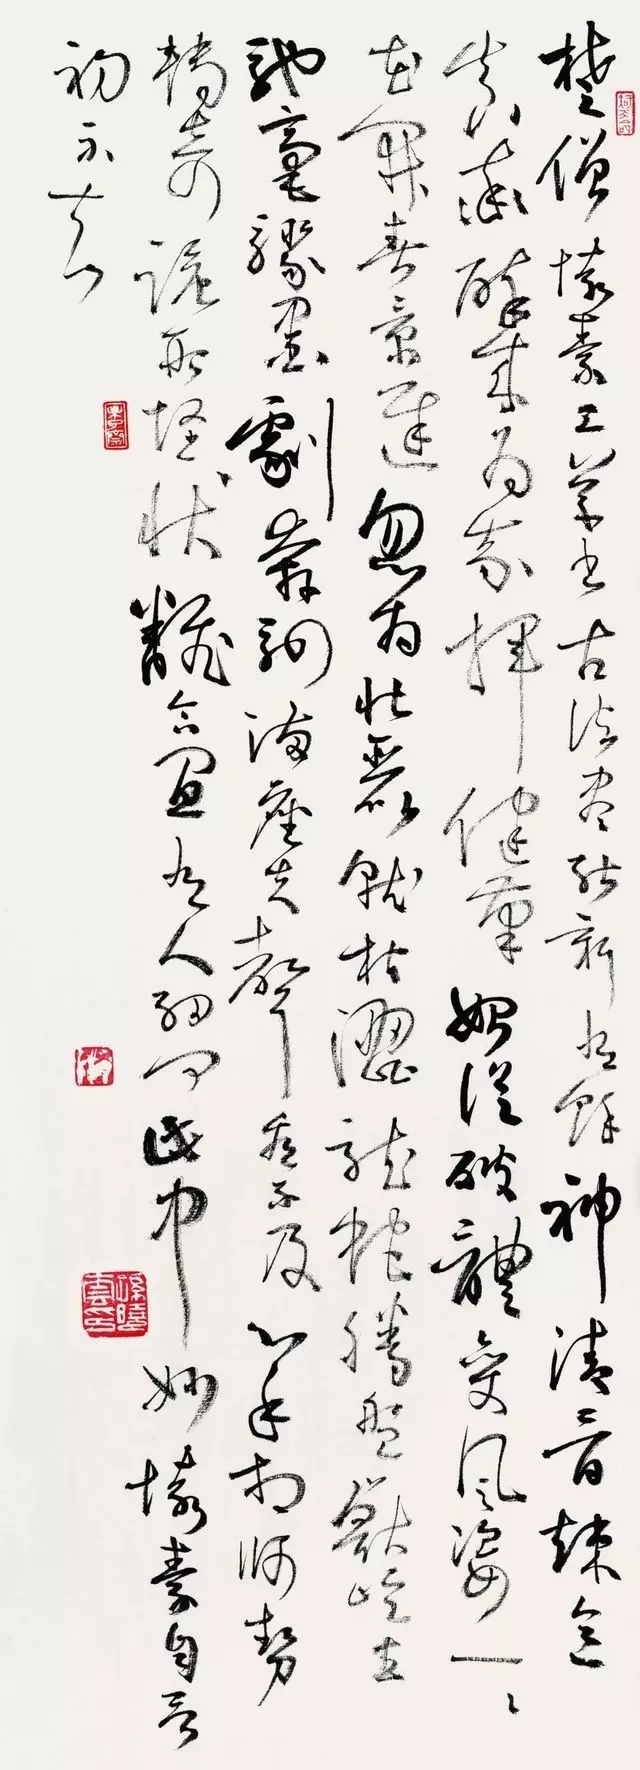 楚僧懷素工草書古法盡能新有餘神清骨竦意
真率醉來為我揮健筆始從破體變風姿一一
花開春景遲忽為壯麗就枯澀龍蛇騰盤獸屹立
馳毫驟墨劇奔駟滿座失聲看不及心手相師勢
轉奇詭形怪狀翻合宜有人細問此中妙懷素自言
初不知
孫曉雲印